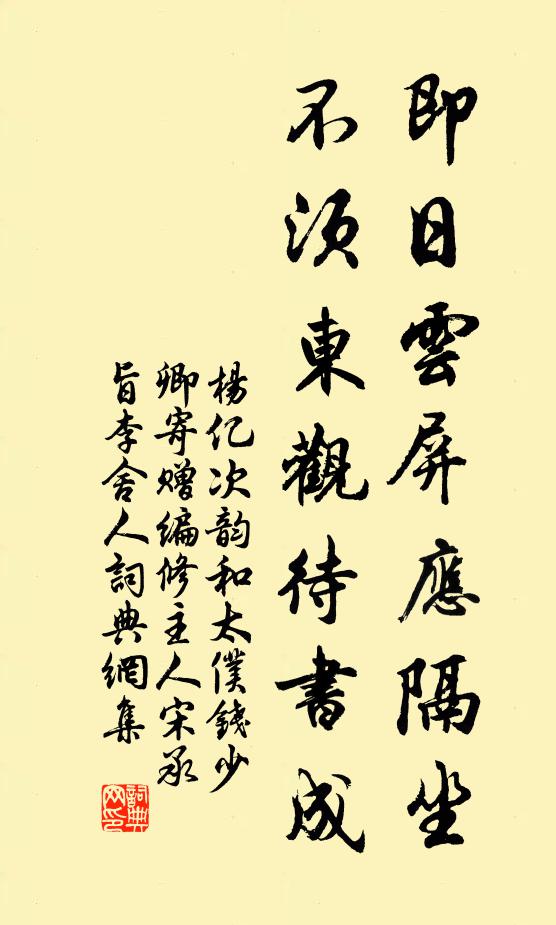 即日雲屏應隔坐
不須東觀待書成
楊亿次韵和太僕錢少
卿寄赠编修主人宋承
旨李舍人詞典網集
詞典网印